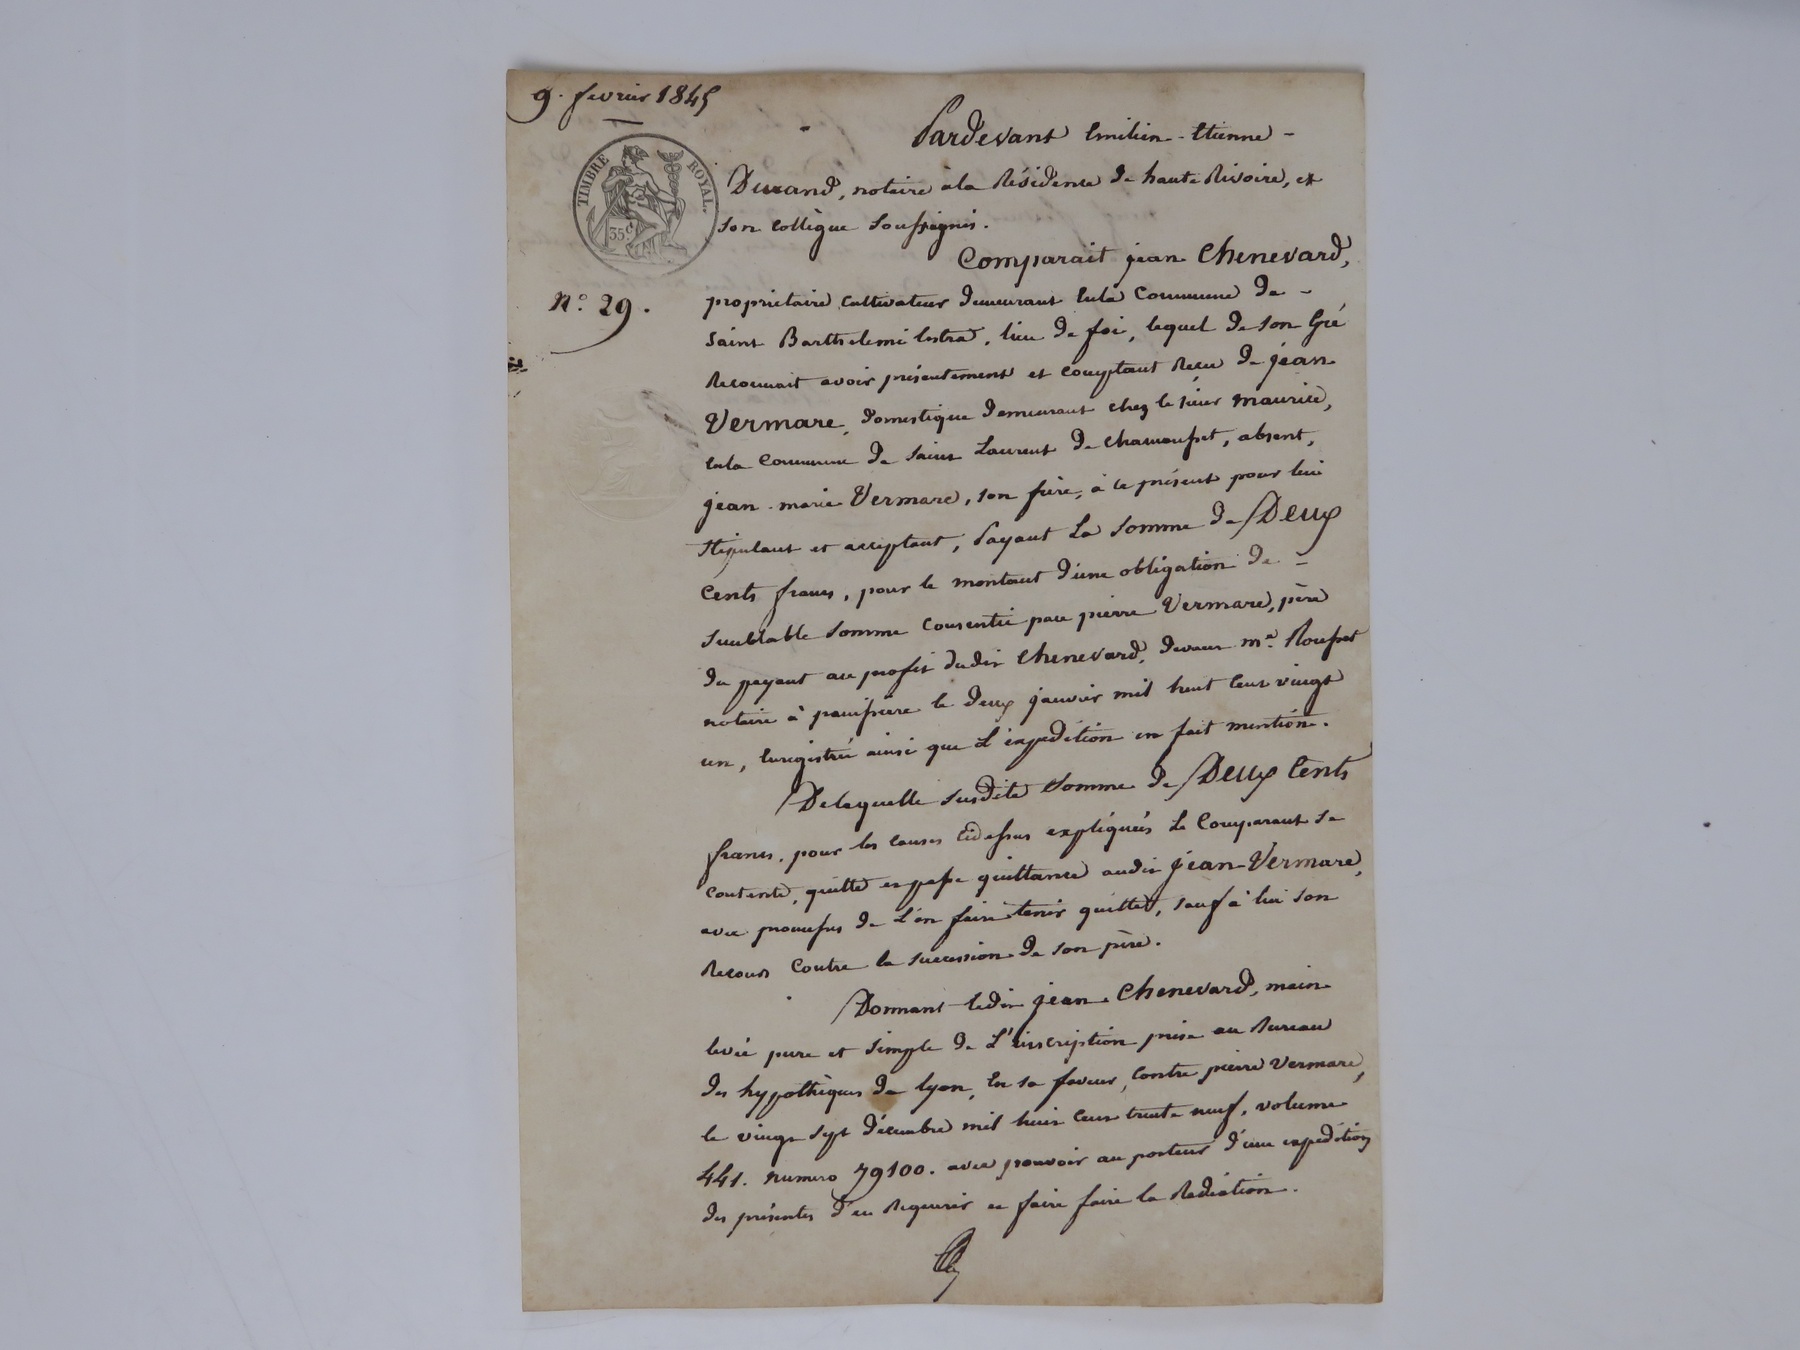 9. fevrier 1845
TIMBRE ROYAL.
35 c
N.º 29.
Pardevant Emilien-Etienne -
Durand, notaire à la Résidence de haute Rivoire, et
son collègue soussignés.
Comparait jean Chenevard,
proprietaire cultivateur demeurant enla Commune de -
saint Barthelemi lestra, lieu de foi, lequel de son Gré
Reconnait avoir présentement et comptant Reçu de jean
Vermare, domestique demeurant chez le sieur maurice,
enla Commune de saint Laurent de chamousset, absent,
jean-marie Vermare, son frère, à ce présent pour lui
stipulant et acceptant, Payant La somme de Deux
Cents francs, pour le montant d'une obligation de -
semblable somme Consentie par pierre Vermare, père
du payant au profit dudit Chenevard, devant m.e Rousset
notaire à panissiere le deux janvier mil huit Cent vingt
un, Enregistrée ainsi que L'expédition en fait mention.
De laquelle susdite somme de Deux Cents
francs, pour les causes Cidessus expliquées Le Comparant se
contente, quitte et passe quittance audit jean Vermare,
avec promesses de L'en faire tenir quitte, sauf à lui son
Recours Contre la succession de son père.
Donnant ledit jean Chenevard, main
levée pure et simple de L'inscription prise au Bureau
des hypothèques de lyon, En sa faveur, Contre pierre Vermare,
le vingt sept décembre mil huit Cent trente neuf, volume
441. numero 79100. avec pouvoir au porteur d'une expédition
des présentes d'en Requerir et faire faire la Radiation.